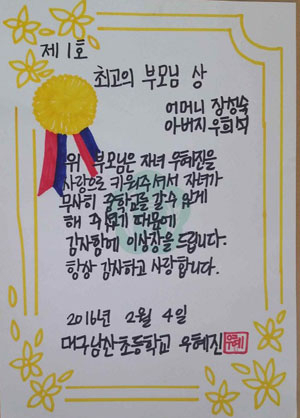 제 1호
최고의 부모님 상
어머니 장성숙
아버지 우희석
위 부모님은 자녀 우혜진을
사랑으로 키워주셔서 자녀가
무사히 중학교를 갈 수 있게
해 주셨기 때문에
감사함에 이상장을 드립니다.
항상 감사하고 사랑합니다.
2016년 2월 4일
대구남산초등학교 우혜진